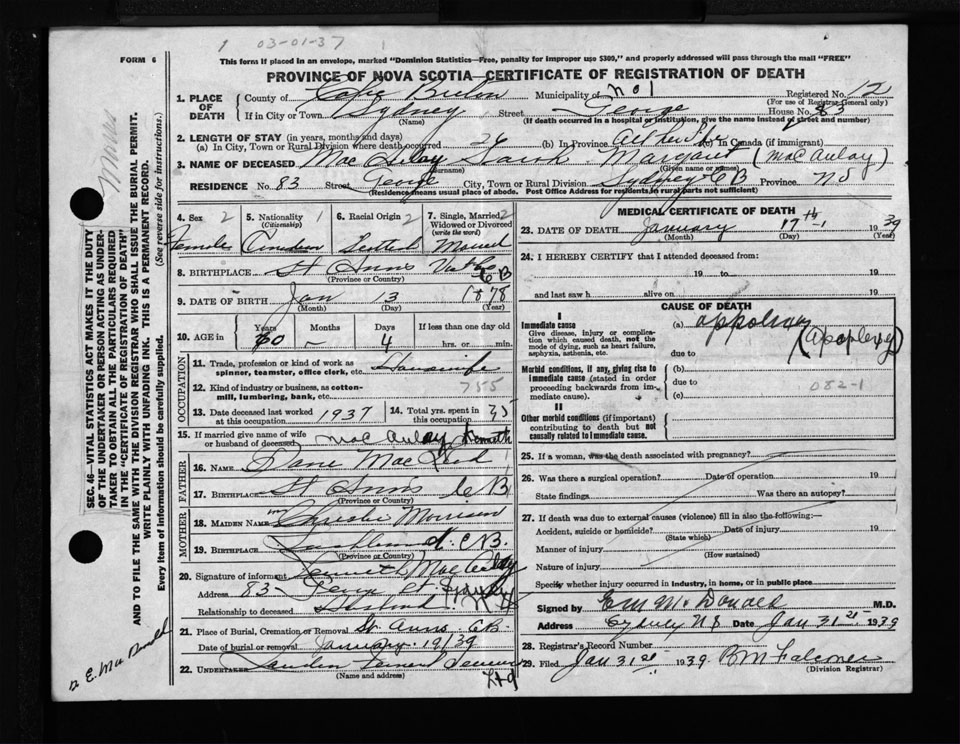 03-01-37
FORM 6
This form if placed in an envelope, marked "Dominion Statistics—Free, penalty for improper use $300," and properly addressed will pass through the mail "FREE"
PROVINCE OF NOVA SCOTIA—CERTIFICATE OF REGISTRATION OF DEATH
1. PLACE OF DEATH
County of Cape Breton
Municipality of No 1
Registered No. 12
(For use of Registrar General only)
If in City or Town Sydney
(Name)
Street George
House No. 83
(If death occurred in a hospital or institution, give the name instead of street and number)
2. LENGTH OF STAY (in years, months and days)
(a) In City, Town or Rural Division where death occurred 26
(b) In Province All her life
(c) In Canada (if immigrant)
3. NAME OF DECEASED Mac Margaret (MacAulay)
(Surname) (Given name or names)
RESIDENCE No. 83 Street George City, Town or Rural Division Sydney CB Province NS
(Residence means usual place of abode. Post Office Address for residents in rural parts not sufficient)
4. Sex 2
Female
5. Nationality 1
(Citizenship)
Canadian
6. Racial Origin 2
Scottish
7. Single, Married, Widowed or Divorced 2
(write the word)
Married
8. BIRTHPLACE St Anns CB
(Province or Country)
9. DATE OF BIRTH Jan 13 1878
(Month) (Day) (Year)
10. AGE in
Years Months Days If less than one day old
60 — 4 hrs. or min.
OCCUPATION
11. Trade, profession or kind of work as spinner, teamster, office clerk, etc. Housewife
12. Kind of industry or business, as cotton-mill, lumbering, bank, etc. 755
13. Date deceased last worked at this occupation 1937
14. Total yrs. spent in this occupation 35
15. If married give name of wife or husband of deceased MacAulay Kenneth
FATHER
16. NAME MacLeod
17. BIRTHPLACE St Anns CB
(Province or Country)
MOTHER
18. MAIDEN NAME Morrison
19. BIRTHPLACE C.B.
(Province or Country)
20. Signature of informant Kenneth MacAulay
Address 83 George St. Sydney N.S
Relationship to deceased Husband
21. Place of Burial, Cremation or Removal St. Anns CB.
Date of burial or removal January 19/39
22. UNDERTAKER Ltd
(Name and address)
MEDICAL CERTIFICATE OF DEATH
23. DATE OF DEATH January 17th 1939
(Month) (Day) (Year)
24. I HEREBY CERTIFY that I attended deceased from:
19 to 19
and last saw h alive on 19
CAUSE OF DEATH
I
Immediate cause
Give disease, injury or complication which caused death, not the mode of dying, such as heart failure, asphyxia, asthenia, etc.
(a) (Apoplexy)
due to
Morbid conditions, if any, giving rise to immediate cause (stated in order proceeding backwards from immediate cause).
(b)
due to 082-1
(c)
II
Other morbid conditions (if important) contributing to death but not causally related to immediate cause.
25. If a woman, was the death associated with pregnancy?
26. Was there a surgical operation? Date of operation 19
State findings Was there an autopsy?
27. If death was due to external causes (violence) fill in also the following:—
Accident, suicide or homicide? Date of injury 19
(State which)
Manner of injury
(How sustained)
Nature of injury
Specify whether injury occurred in industry, in home, or in public place
Signed by E M McDonald M.D.
Address Sydney NS Date Jan 31st 1939
28. Registrar's Record Number
29. Filed Jan 31st 1939 B M Falconer
(Division Registrar)
SEC. 46—VITAL STATISTICS ACT MAKES IT THE DUTY
OF THE UNDERTAKER OR PERSON ACTING AS UNDER-
TAKER TO OBTAIN ALL THE PARTICULARS REQUIRED
IN THE "CERTIFICATE OF REGISTRATION OF DEATH"
AND TO FILE THE SAME WITH THE DIVISION REGISTRAR WHO SHALL ISSUE THE BURIAL PERMIT.
WRITE PLAINLY WITH UNFADING INK. THIS IS A PERMANENT RECORD.
Every item of information should be carefully supplied. (See reverse side for instructions.)
E. MacDonald